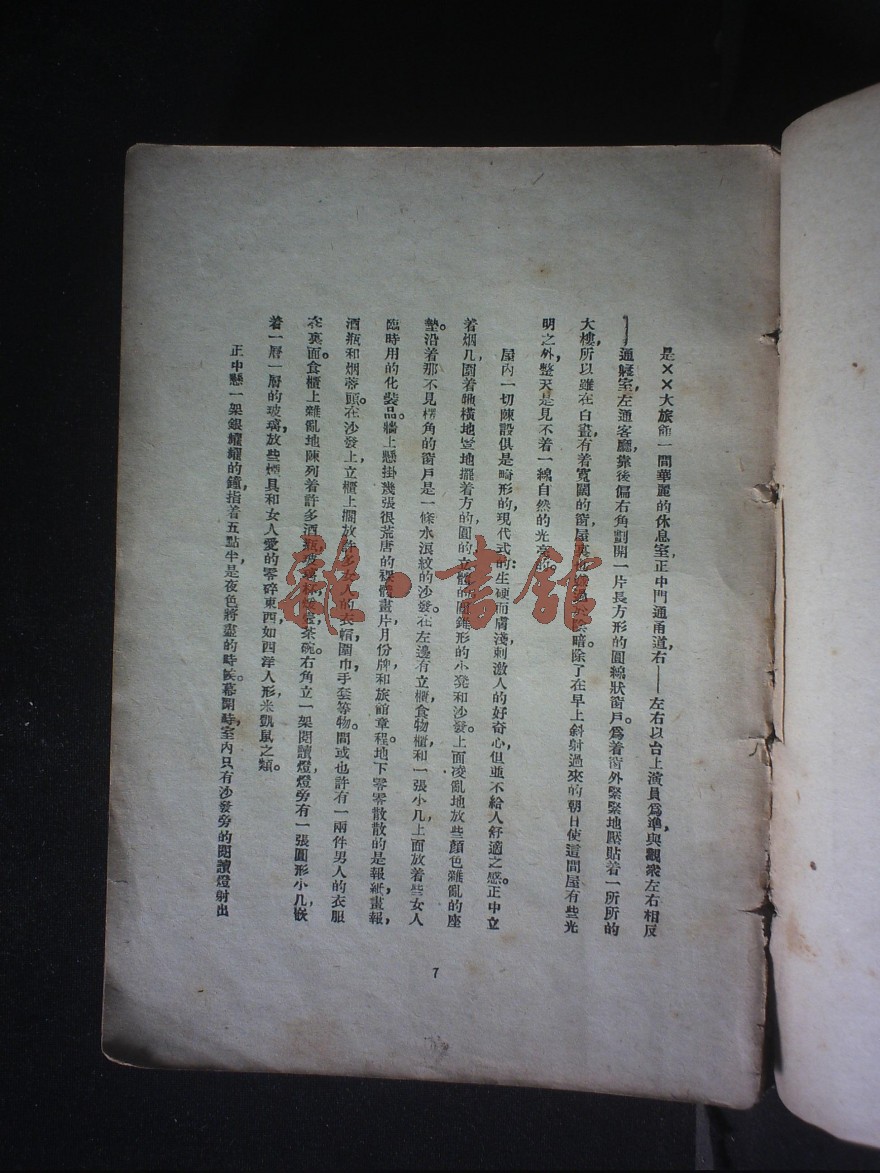 是××大旅館一間華麗的休息室，正中門通甬道，右——左右以台上演員爲準，與觀衆左右相反
——通寢室，左通客廳，靠後偏右角劃開一片長方形的圓線狀窗戶。爲着窗外緊緊地壓貼着一所所的
大樓，所以雖在白晝，有着寬闊的窗，屋裏也嫌過於陰暗。除了在早上斜射過來的朝日使這間屋有些光
明之外，整天是見不着一線自然的光亮的。
屋內一切陳設俱是畸形的，現代式的，生硬而膚淺，刺激人的好奇心，但並不給人舒適之感。正中立
着烟几，圍着牠橫地豎地擺着方的、圓的、立體的、圓錐形的小凳和沙發。上面凌亂地放些顏色雜亂的座
墊。沿着那不見棱角的窗戶是一條水浪紋的沙發。在左邊有立櫃，食物櫃和一張小几，上面放着些女人
臨時用的化裝品。牆上懸掛幾張很荒唐的裸體畫片，月份牌和旅館章程。地下零零散散的是報紙，畫報，
酒瓶和烟蒂頭。在沙發上，立櫃上擱放許多女人的衣帽，圍巾，手套等物。間或也許有一兩件男人的衣服
在裏面。食櫃上雜亂地陳列着許多酒瓶，玻璃杯，暖壺，茶碗。右角立一架閱讀燈，燈旁有一張圓形小几，嵌
着一層一層的玻璃，放些烟具和女人愛的零碎東西，如西洋人形，米凱鼠之類。
正中懸一架銀耀耀的鐘，指着五點半，是夜色將盡的時候。幕開時，室內只有沙發旁的閱讀燈射出
7
雜·書館